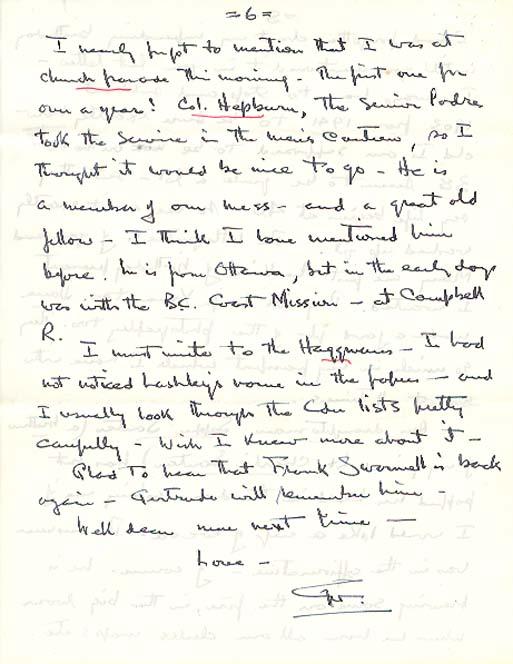 = 6 =
I nearly forgot to mention that I was at
church parade this morning - the first one for
over a year! Col. Hepburn, the Senior Padre
took the service in the men's canteen, so I
thought it would be nice to go - He is
a member of our mess - and a great old
fellow - I think I have mentioned him
before. he is from Ottawa, but in the early days
was with the B.C. Coast Mission - at Campbell
R.
I must write to the - I had
not noticed Lashleys name in the papers - and
I usually look through the Cdn lists pretty
carefully - Wish I knew more about it -
Glad to hear that Frank Swannell is back
again - Gertrude will remember him -
Well dear more next time -
Love -